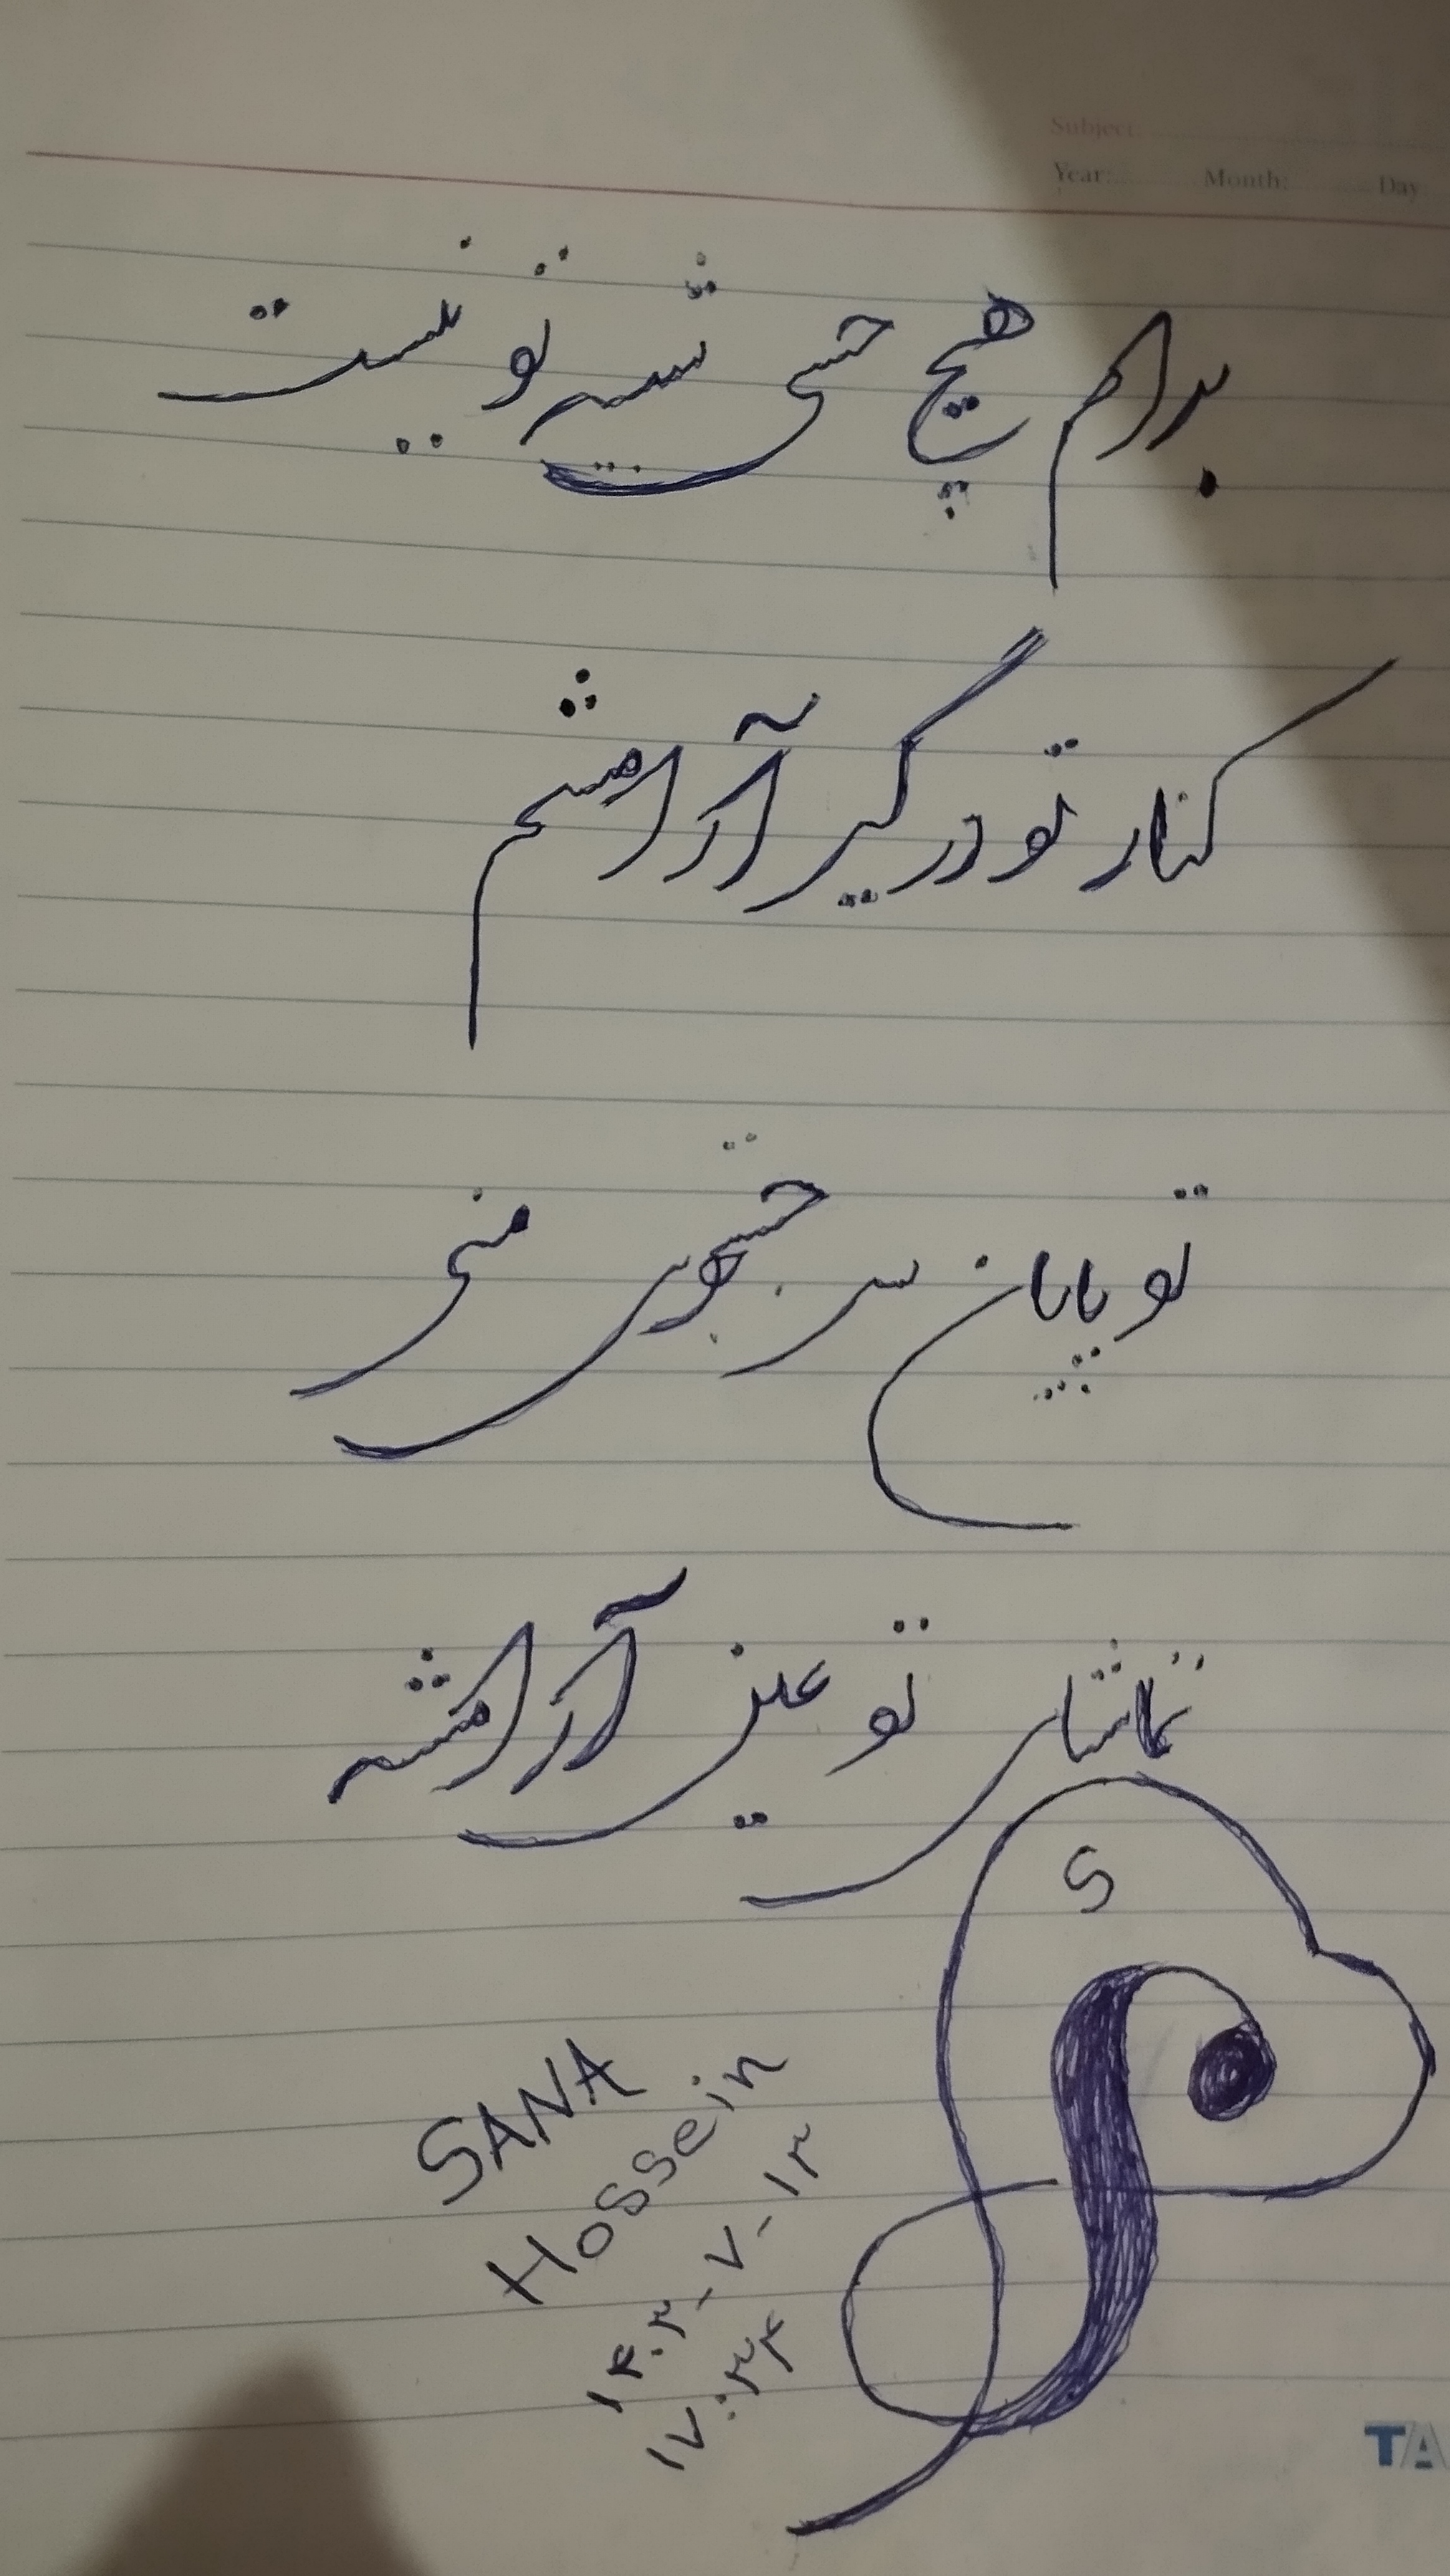 Subject:
Year: Month: Day:
برام هیچ حسی شبیه تو نیست
کنار تو درگیر آرامشم
تو پایان هر جستجوی منی
تماشای تو عین آرامشه
S
SANA
Hossein
۱۴۰۲-۷-۱۲
۱۷:۲۴
TA